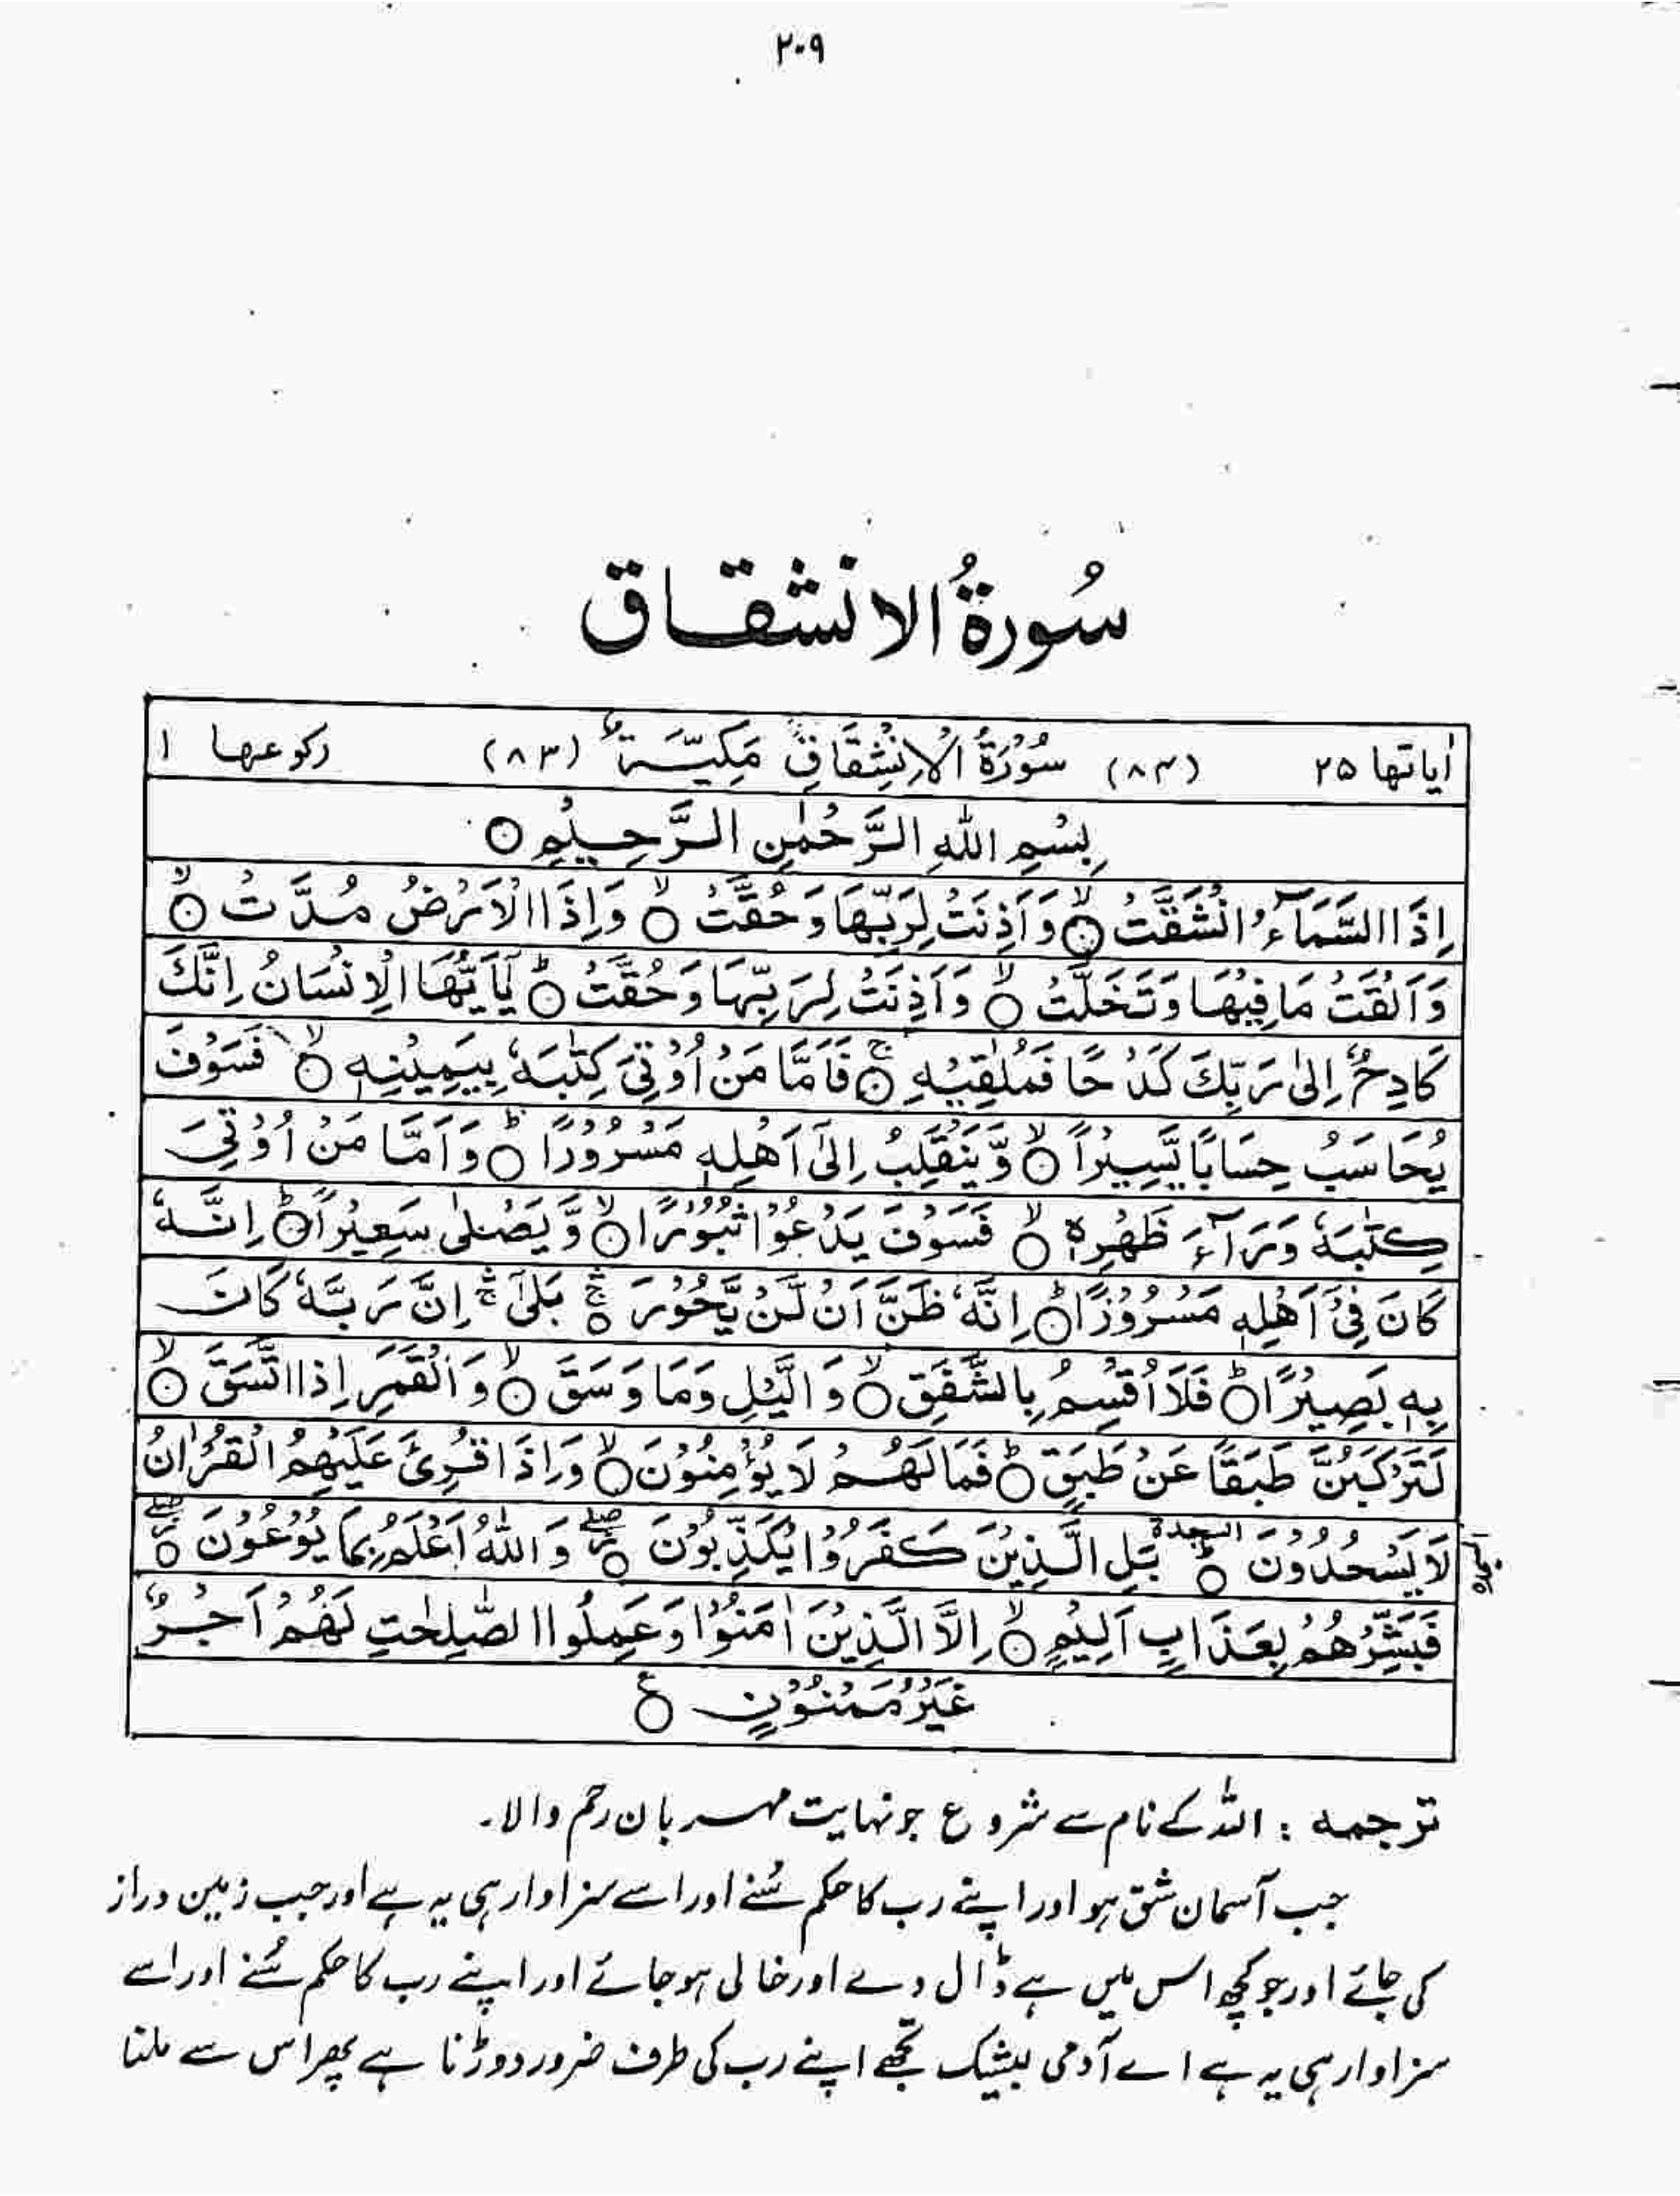 ۲۰۹
سُورۃُ الانشقاق
اٰیاتھا ۲۵ (۸۴) سُوْرَۃُ الْاِنْشِقَاقِ مَکِّیَّۃٌ (۸۳) رکوعھا ۱
بِسْمِ اللّٰہِ الرَّحْمٰنِ الرَّحِیْمِ ○
اِذَا السَّمَآءُ انْشَقَّتْ ○ۙ وَاَذِنَتْ لِرَبِّھَا وَحُقَّتْ ○ۙ وَاِذَا الْاَرْضُ مُدَّتْ ○ۙ
وَاَلْقَتْ مَا فِیْھَا وَتَخَلَّتْ ○ۙ وَاَذِنَتْ لِرَبِّھَا وَحُقَّتْ ○ؕ یٰٓاَیُّھَا الْاِنْسَانُ اِنَّکَ
کَادِحٌ اِلٰی رَبِّکَ کَدْحًا فَمُلٰقِیْہِ ○ۚ فَاَمَّا مَنْ اُوْتِیَ کِتٰبَہٗ بِیَمِیْنِہٖ ○ۙ فَسَوْفَ
یُحَاسَبُ حِسَابًا یَّسِیْرًا ○ۙ وَّیَنْقَلِبُ اِلٰٓی اَھْلِہٖ مَسْرُوْرًا ○ؕ وَاَمَّا مَنْ اُوْتِیَ
کِتٰبَہٗ وَرَآءَ ظَھْرِہٖ ○ۙ فَسَوْفَ یَدْعُوْا ثُبُوْرًا ○ۙ وَّیَصْلٰی سَعِیْرًا ○ؕ اِنَّہٗ
کَانَ فِیْٓ اَھْلِہٖ مَسْرُوْرًا ○ؕ اِنَّہٗ ظَنَّ اَنْ لَّنْ یَّحُوْرَ ○ۚۛ بَلٰٓی ۚۛ اِنَّ رَبَّہٗ کَانَ
بِہٖ بَصِیْرًا ○ؕ فَلَآ اُقْسِمُ بِالشَّفَقِ ○ۙ وَالَّیْلِ وَمَا وَسَقَ ○ۙ وَالْقَمَرِ اِذَا اتَّسَقَ ○ۙ
لَتَرْکَبُنَّ طَبَقًا عَنْ طَبَقٍ ○ؕ فَمَا لَھُمْ لَا یُؤْمِنُوْنَ ○ۙ وَاِذَا قُرِئَ عَلَیْھِمُ الْقُرْاٰنُ
لَا یَسْجُدُوْنَ ○ؕ السجدۃ بَلِ الَّذِیْنَ کَفَرُوْا یُکَذِّبُوْنَ ○ۖ وَاللّٰہُ اَعْلَمُ بِمَا یُوْعُوْنَ ○ۖ السجدہ
فَبَشِّرْھُمْ بِعَذَابٍ اَلِیْمٍ ○ۙ اِلَّا الَّذِیْنَ اٰمَنُوْا وَعَمِلُوا الصّٰلِحٰتِ لَھُمْ اَجْرٌ
غَیْرُ مَمْنُوْنٍ ○ع
ترجمہ : اللہ کے نام سے شروع جو نہایت مہربان رحم والا۔
جب آسمان شق ہو اور اپنے رب کا حکم سُنے اور اسے سزاوار ہی یہ ہے اور جب زمین دراز
کی جائے اور جو کچھ اس میں ہے ڈال دے اور خالی ہو جائے اور اپنے رب کا حکم سُنے اور اسے
سزاوار ہی یہ ہے اے آدمی بیشک تجھے اپنے رب کی طرف ضرور دوڑنا ہے پھر اس سے ملنا